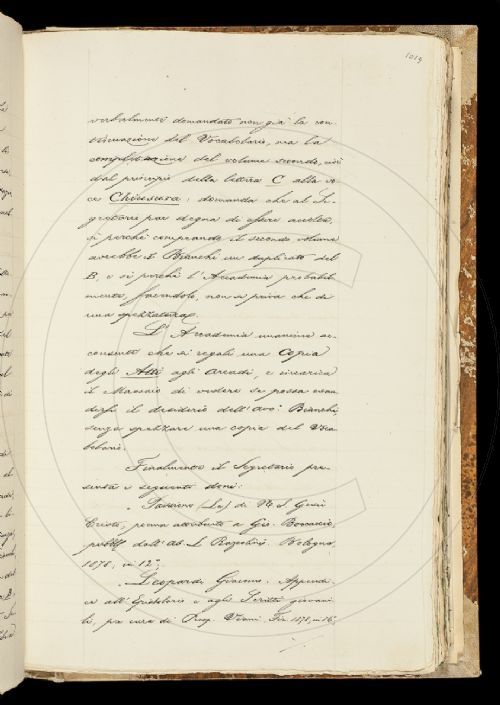 1019
verbalmente domandato non già la con-
tinuazione del Vocabolario, ma la
completazione del volume secondo, cioè
dal principio della lettera C alla vo-
ce Chiusura: domanda che al Se-
gretario par degna di essere accolta,
sì perché comprando il secondo volume
avrebbe il Bianchi un duplicato del
B, e sì perché l'Accademia probabil-
mente, facendolo, non si priva che di
una spezzatura.
L'Accademia unanime ac-
consente che si regali una Copia
degli Atti agli Arcadi, e incarica
il Massaio di vedere se possa esau-
dirsi il desiderio dell'Avv. Bianchi
senza spezzare una copia del Voca-
bolario.
Finalmente il Segretario pre-
senta i seguenti doni:
Passione (La) di N. S. Gesù
Cristo, poema attribuito a Gio. Boccaccio,
pubbl. dall'Ab. L. Razzolini. Bologna,
1878, in 12°;
Leopardi, Giacomo. Appendi-
ce all'Epistolario e agli Scritti giovani-
li, per cura di Prosp. Viani. Fir. 1878, in 16°